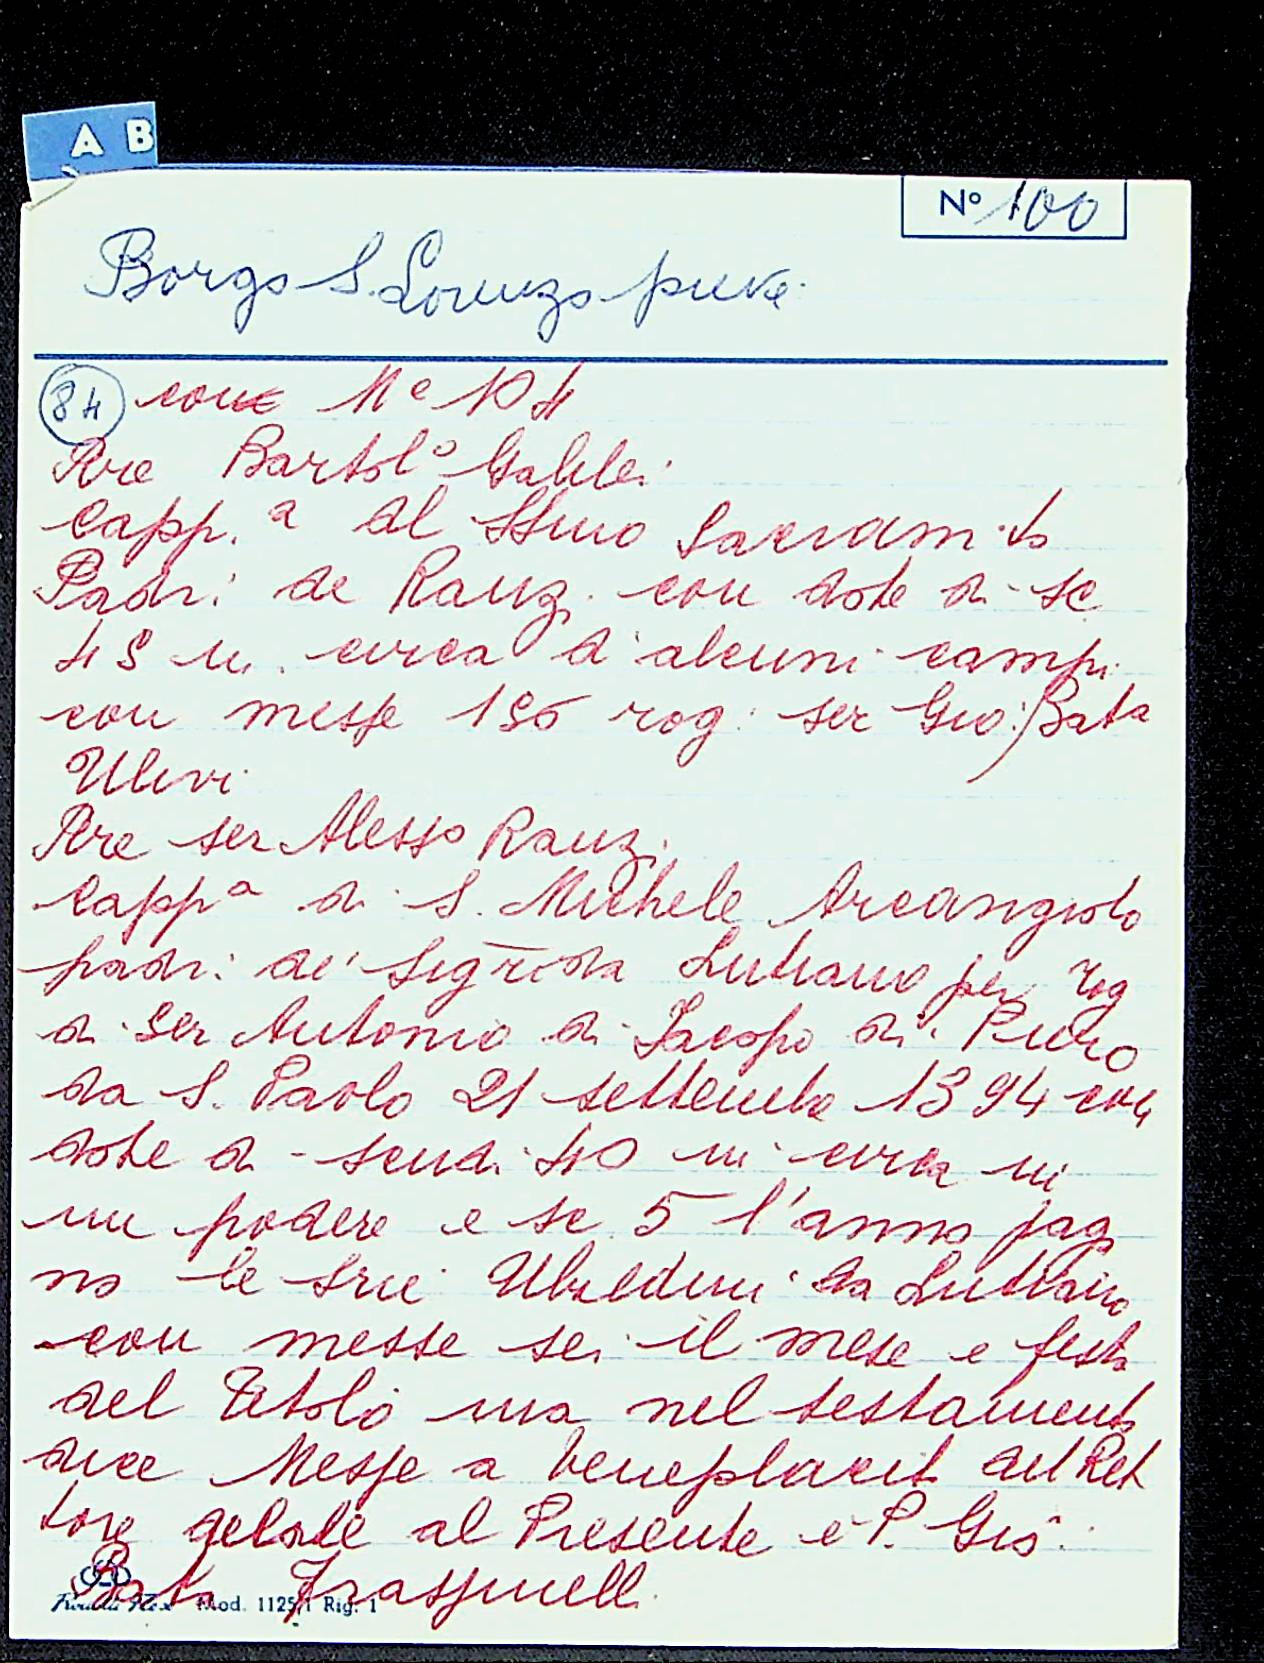 A B
Nº 100
Borgo S. Lorenzo pieve
84 con Nº 104
Pre Bartolº Galilei
Capp.ª al SSmo Sacram.to
Padri de Ranz. con dote di sc
45 in circa d'alcuni campi
con messe 156 rog. ser Gio: Bata
Ulivi
Pre ser Alesso Ranz.
Cappª di S. Michele Arcangiolo
padri de' Sigri da Lutiano per rog
di Ser Antonio di Jacopo di Piero
da S. Paolo 21 settembe 1394 con
dote di scudi 40 in circa in
un podere e sc 5 l'anno pag
no le Srie Ubaldini da Lutiano
con messe sei il mese e festa
del Titolo ma nel testamento
dice Messe a beneplacit del Ret
tore al Presente è P. Gio
Bata Fraspinelli
Mod. 1125/1 Rig. 1